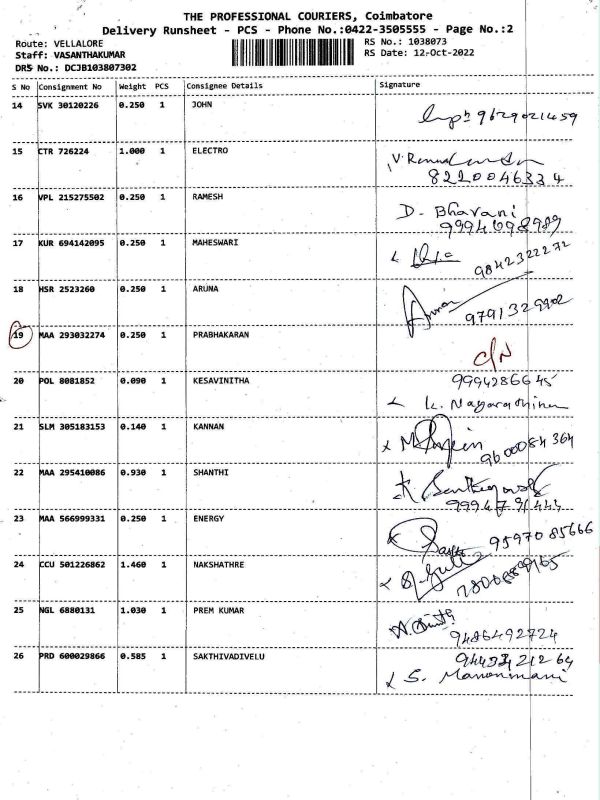 THE PROFESSIONAL COURIERS, Coimbatore
Delivery Runsheet - PCS - Phone No.:0422-3505555 - Page No.:2
Route: VELLALORE
RS No.: 1038073
Staff: VASANTHAKUMAR
RS Date: 12-Oct-2022
DRS No.: DCJB103807302
S No Consignment No Weight PCS Consignee Details Signature
14 SVK 30120226 0.250 1 JOHN
9629021459
15 CTR 726224 1.000 1 ELECTRO
8220046334
16 VPL 215275502 0.250 1 RAMESH
D. Bhavani
17 KUR 694142095 0.250 1 MAHESWARI
9842322272
18 HSR 2523260 0.250 1 ARUNA
19 MAA 293032274 0.250 1 PRABHAKARAN
C/N
20 POL 8081852 0.090 1 KESAVINITHA
9994286645
21 SLM 305183153 0.140 1 KANNAN
9600084364
22 MAA 295410086 0.930 1 SHANTHI
23 MAA 566999331 0.250 1 ENERGY
9597085666
24 CCU 501226862 1.460 1 NAKSHATHRE
25 NGL 6880131 1.030 1 PREM KUMAR
9486492724
26 PRD 600029866 0.585 1 SAKTHIVADIVELU
S. Manonmani